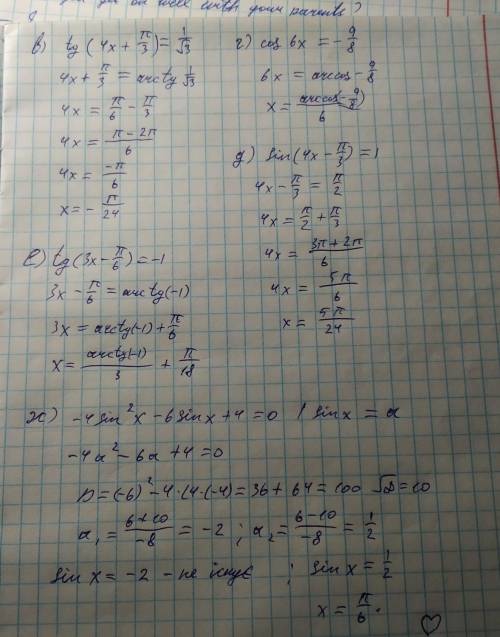 with your parents?
в) tg(4x + π/3) = 1/√3
4x + π/3 = arctg 1/√3
4x = π/6 - π/3
4x = π-2π/6
4x = -π/6
x = - π/24
г) cos 6x = - 9/8
6x = arccos - 9/8
x = arccos(- 9/8)/6
д) sin(4x - π/3) = 1
4x - π/3 = π/2
4x = π/2 + π/3
4x = 3π + 2π/6
4x = 5π/6
x = 5π/24
е) tg(3x - π/6) = -1
3x - π/6 = arctg(-1)
3x = arctg(-1) + π/6
x = arctg(-1)/3 + π/18
ж) -4sin²x - 6sinx + 4 = 0 / sinx = a
-4a² - 6a + 4 = 0
D = (-6)² - 4·(4·(-4) = 36 + 64 = 100 √D = 10
a₁ = 6+10/-8 = -2 ; a₂ = 6-10/-8 = 1/2
sin x = -2 - не існує ; sin x = 1/2
x = π/6.